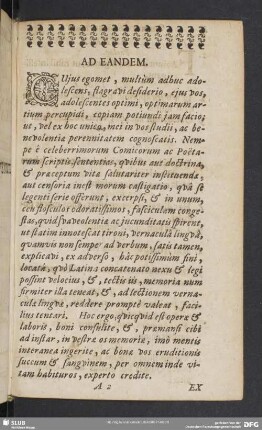 AD EANDEM.
CUjus egomet, multùm adhuc ado-
lescens, flagravi desiderio, ejus vos,
adolescentes optimi, optimarum ar-
tium percupidi, copiam potiundi jam facio;
ut, vel ex hoc unico, mei in vos studii, ac be-
nevolentiæ perennitatem cognoscatis. Nem-
pe è celeberrimorum Comicorum ac Poëta-
rum scriptis sententias, quibus aut doctrina,
& præceptum vita salutariter instituenda,
aut censoria inest morum castigatio, quâ se
legenti serie offerunt, excerpsi, & in unum,
ceu flosculos odoratissimos, fasciculum conges-
tas, quid suaveolentia ac jucunditatis spirent,
ut statim innotescat tironi, vernaculâ linguâ,
quamvis non semper ad verbum, satis tamen,
explicavi, ex adverso, hâc potissimùm fini
locatâ, quò Latina concatenato nexu & legi
possint velocius, & tectis iis, memoria num
firmiter illa teneat, &, ad lectionem verna-
culæ linguæ, reddere promptè valeat, faci-
lius tentari. Hoc ergo, quicquid est operæ &
laboris, boni consulite, &, præmansi cibi
ad instar, in vestræ os memoriæ, imò mentis
interanea ingerite, ac bonæ vos eruditionis
succum & sanguinem, per omnem inde vi-
tam habituros, experto credite.
A 2 EX
SLUB
DFG